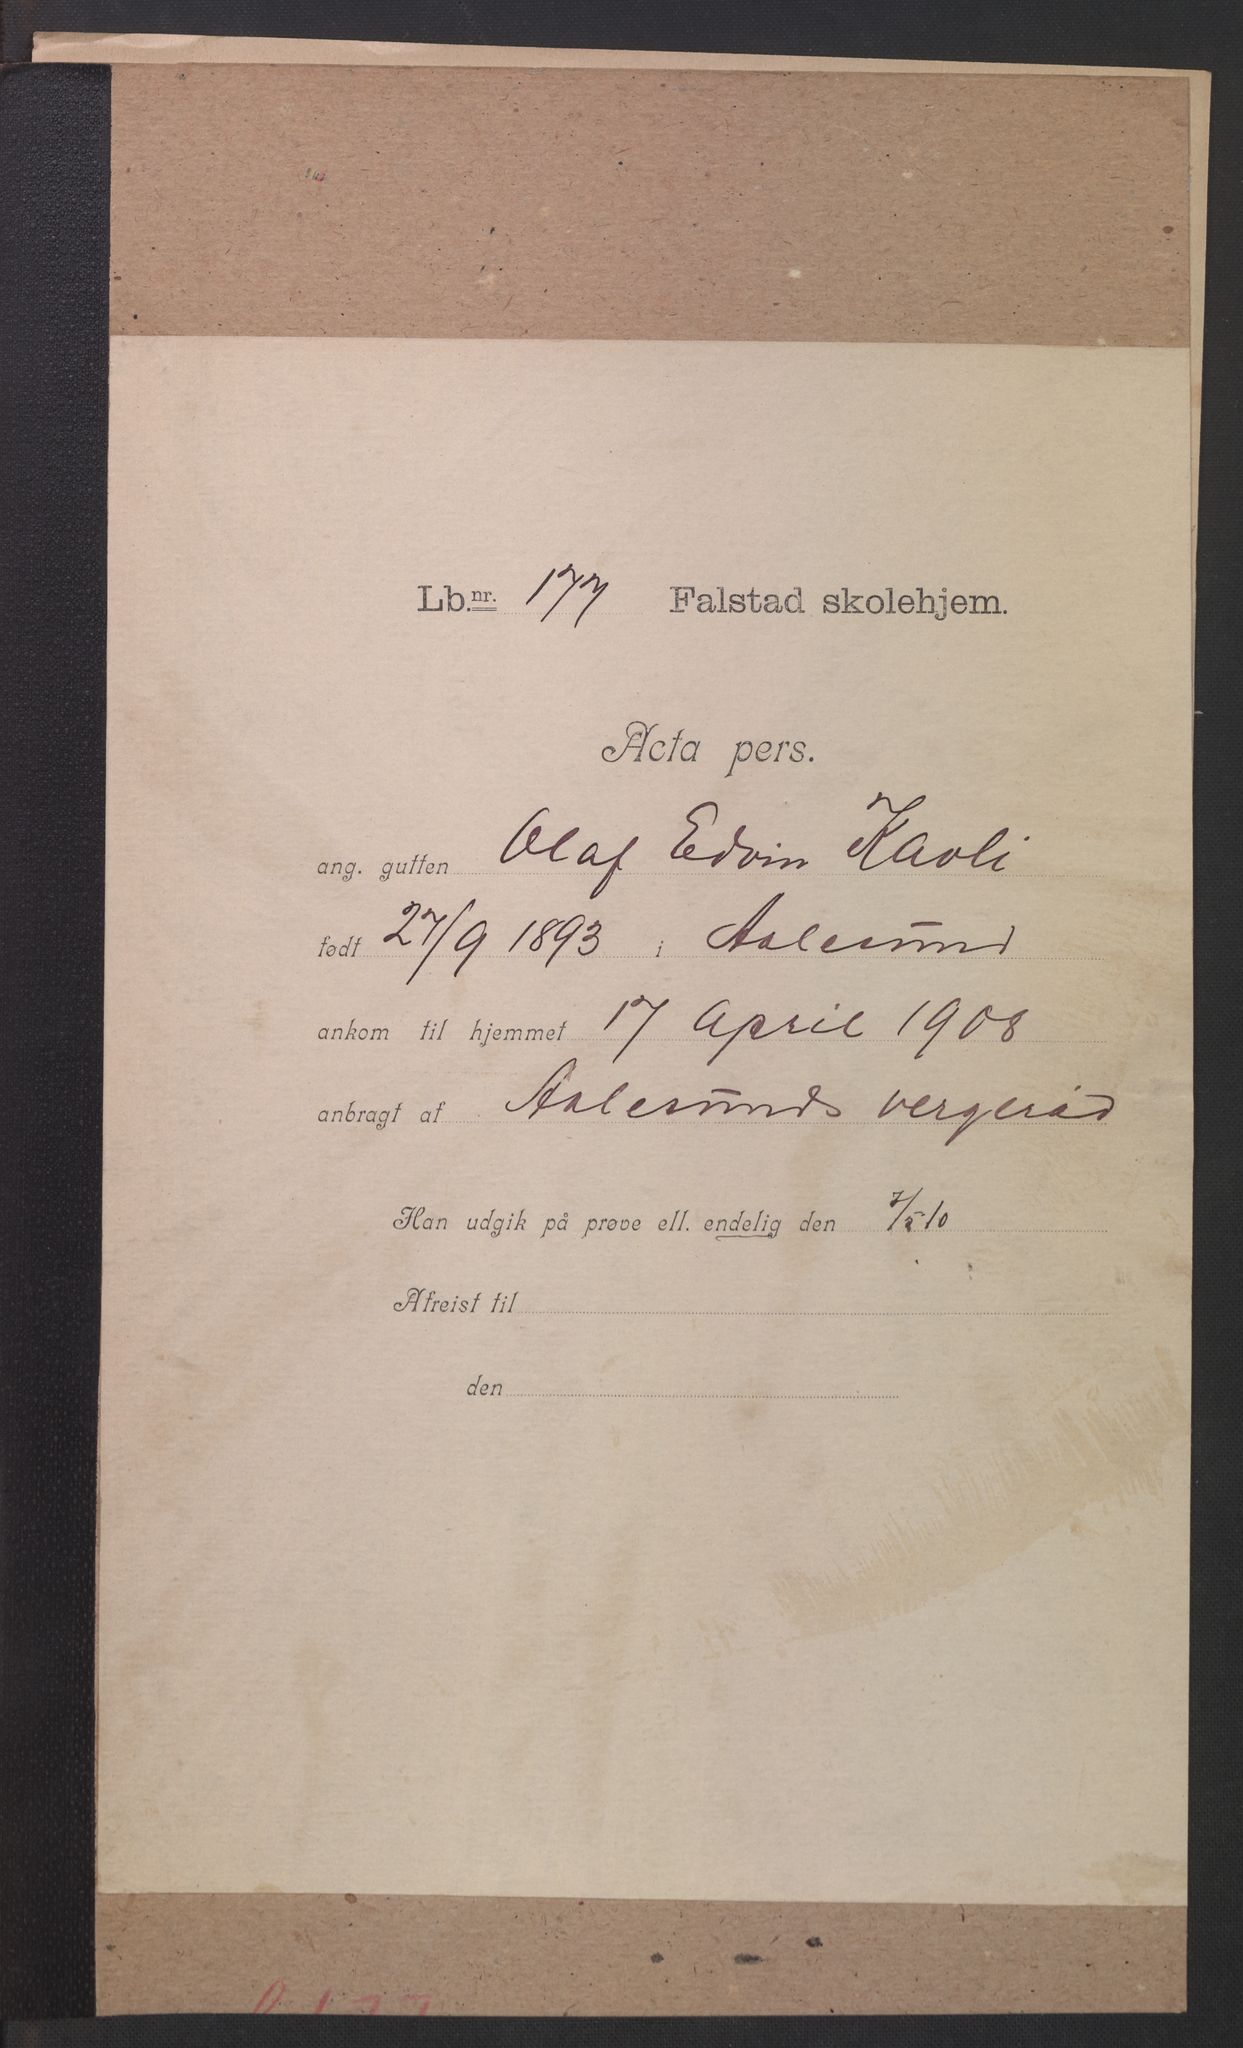 Lb.nr. 177 Falstad skolehjem.
Acta pers.
ang. gutten Olaf Edvin Kavli
født 27/9 1893 i Aalesund
ankom til hjemmet 17 april 1908
anbragt af Aalesunds vergeråd
Han udgik på prøve ell. endelig den 7/5 10
Afreist til
den